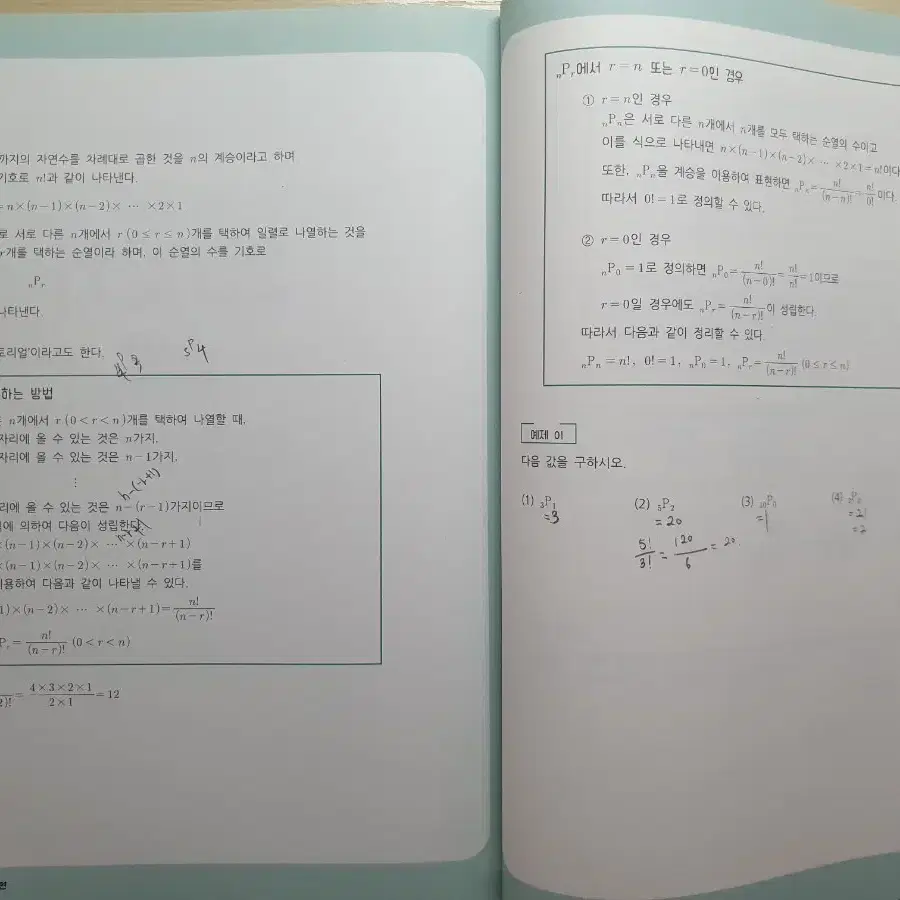 까지의 자연수를 차례대로 곱한 것을 n의 계승이라고 하며
기호로 n!과 같이 나타낸다.
=n×(n-1)×(n-2)× ⋯ ×2×1
로 서로 다른 n개에서 r(0≤r≤n)개를 택하여 일렬로 나열하는 것을
r개를 택하는 순열이라 하며, 이 순열의 수를 기호로
nPr
나타낸다.
토리얼'이라고도 한다.
5P4
하는 방법
n개에서 r(0<r<n)개를 택하여 나열할 때,
자리에 올 수 있는 것은 n가지.
자리에 올 수 있는 것은 n-1가지.
⋮
n-(r+1)
리에 올 수 있는 것은 n-(r-1)가지이므로
에 의하여 다음이 성립한다.
×(n-1)×(n-2)× ⋯ ×(n-r+1)
×(n-1)×(n-2)× ⋯ ×(n-r+1)를
이용하여 다음과 같이 나타낼 수 있다.
1)×(n-2)× ⋯ ×(n-r+1)=n!/(n-r)!
Pr=n!/(n-r)! (0<r<n)
2)!=4×3×2×1/2×1=12
nPr에서 r=n 또는 r=0인 경우
① r=n인 경우
nPn은 서로 다른 n개에서 n개를 모두 택하는 순열의 수이고
이를 식으로 나타내면 n×(n-1)×(n-2)× ⋯ ×2×1=n!이다.
또한, nPn을 계승을 이용하여 표현하면 nPn=n!/(n-n)!=n!/0!이다.
따라서 0!=1로 정의할 수 있다.
② r=0인 경우
nP0=1로 정의하면 nP0=n!/(n-0)!=n!/n!=1이므로
r=0일 경우에도 nPr=n!/(n-r)!이 성립한다.
따라서 다음과 같이 정리할 수 있다.
nPn=n!, 0!=1, nP0=1, nPr=n!/(n-r)! (0≤r≤n)
예제 01
다음 값을 구하시오.
(1) 3P1 (2) 5P2 (3) 10P0 (4) 2P2
=3 =20 =1 =2!
=2
5!/3! = 120/6 = 20.